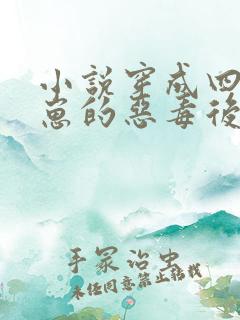 小说穿成四
崽的恶毒后
手冢治虫
未经同意禁止转载